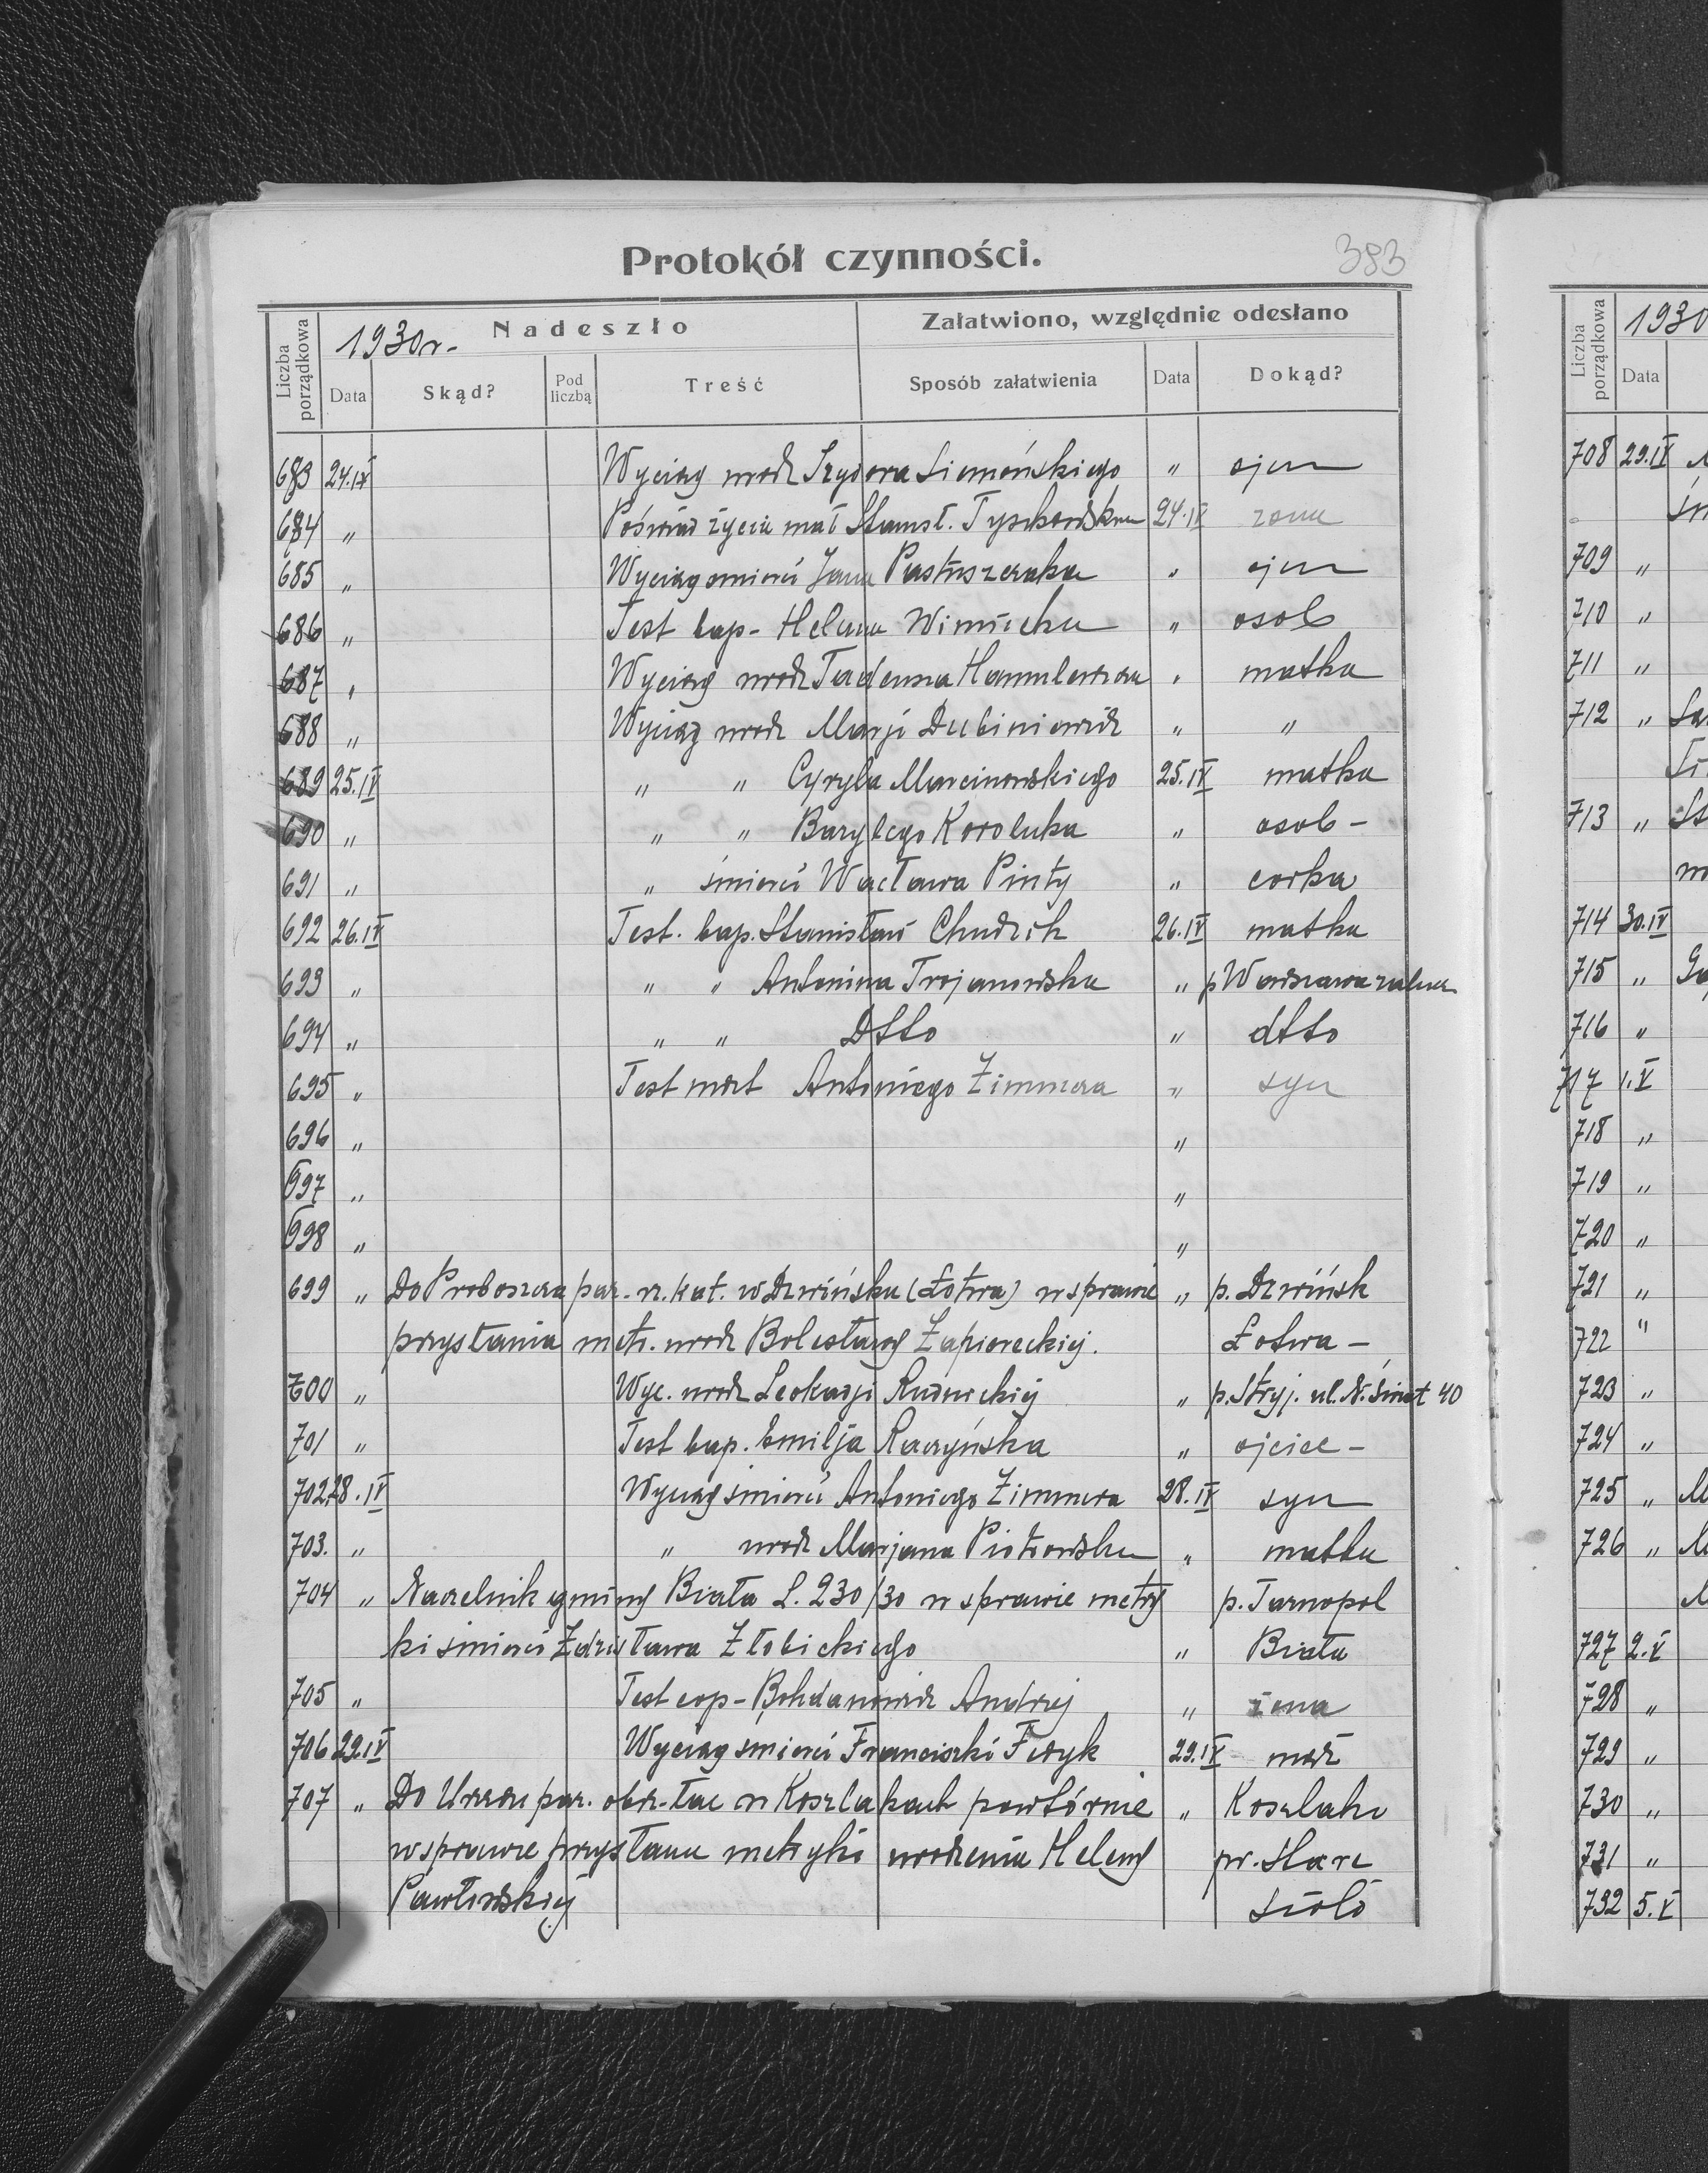 Protokół czynności.
383
Liczba porządkowa
1930r.
Nadeszło
Załatwiono, względnie odesłano
Data
Skąd?
Pod liczbą
Treść
Sposób załatwienia
Data
Dokąd?
683 24.IV Wyciąg urodz Izydora Siemońskiego " ojciec
684 " Poświad życia mał Stanisł. 24.IV żona
685 " Wyciąg śmierci Jana Pastuszczaka " ojciec
686 " Test bap- Helena " osob
687 " Wyciąg urodz Tadeusza " matka
688 " Wyciąg urodz Marji Dubiniewicz " "
689 25.IV " " Cyryla Marcinowskiego 25.IV matka
690 " " " Koroluka " osob-
691 " " śmierci Wacława Pinty " corka
692 26.IV Test. bap. Stanisław Chudzik 26.IV matka
693 " " " Antonina Trojanowska " p Warszawa
694 " " " Dtto " dtto
695 " Test mort Antoniego Zimmera " syn
696 " "
697 " "
698 " "
699 " Do Proboszcza par. rz. kat. w Dzwińsku (Łotwa) w sprawie " p. Dzwińsk
przysłania metr. urodz Bolesławy Zapioreckiej. Łotwa -
700 " Wyc. urodz Leokadji Rudnickiej " p. Stryj. ul. N. Świat 40
701 " Test bap. Emilja Raczyńska " ojciec -
702 28.IV Wyciąg śmierci Antoniego Zimmera 28.IV syn
703. " " urodz Marjana Piotrowska " matka
704 " Naczelnik gminy Biała L. 230/30 w sprawie metry p. Tarnopol
ki śmierci Zdzisława Złobickiego " Biała
705 " Test cop- Bohdanowicz Andrzej " żona
706 29.IV Wyciąg śmierci Franciszki 29.IV mąż
707 " Do Urzędu par. obrz. łac w Koszlakach powtórnie " Koszlaki
w sprawie przysłania metryki urodzenia Heleny pr. Stare
Pawłowskiej Sioło
Liczba porządkowa
1930
Data
708 29.IV
709 "
710 "
711 "
712 "
713 "
714 30.IV
715 "
716 "
717 1.V
718 "
719 "
720 "
721 "
722 "
723 "
724 "
725 "
726 "
727 2.V
728 "
729 "
730 "
731 "
732 5.V